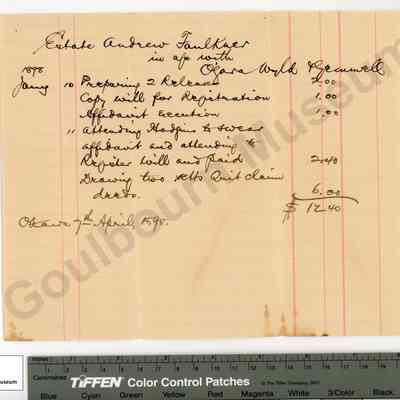 Estate Andrew Faulkner
in a/c with
O'Gara Wyld & Gemmell
1898
Jany 10 Preparing 2 Releases 2.00
Copy will for Registration 1.00
Affidavit Execution 1.00
11 Attending Hodgins to swear
affidavit and attending to
Register will and paid 2.40
Drawing two setts Quit claim
deeds. 6.00
$ 12.40
Ottawa 7th April, 1898.
Goulbourn Museum
Museum
Inches
Centimetres
TIFFEN Color Control Patches
© The Tiffen Company, 2007
Blue Cyan Green Yellow Red Magenta White 3/Color Black